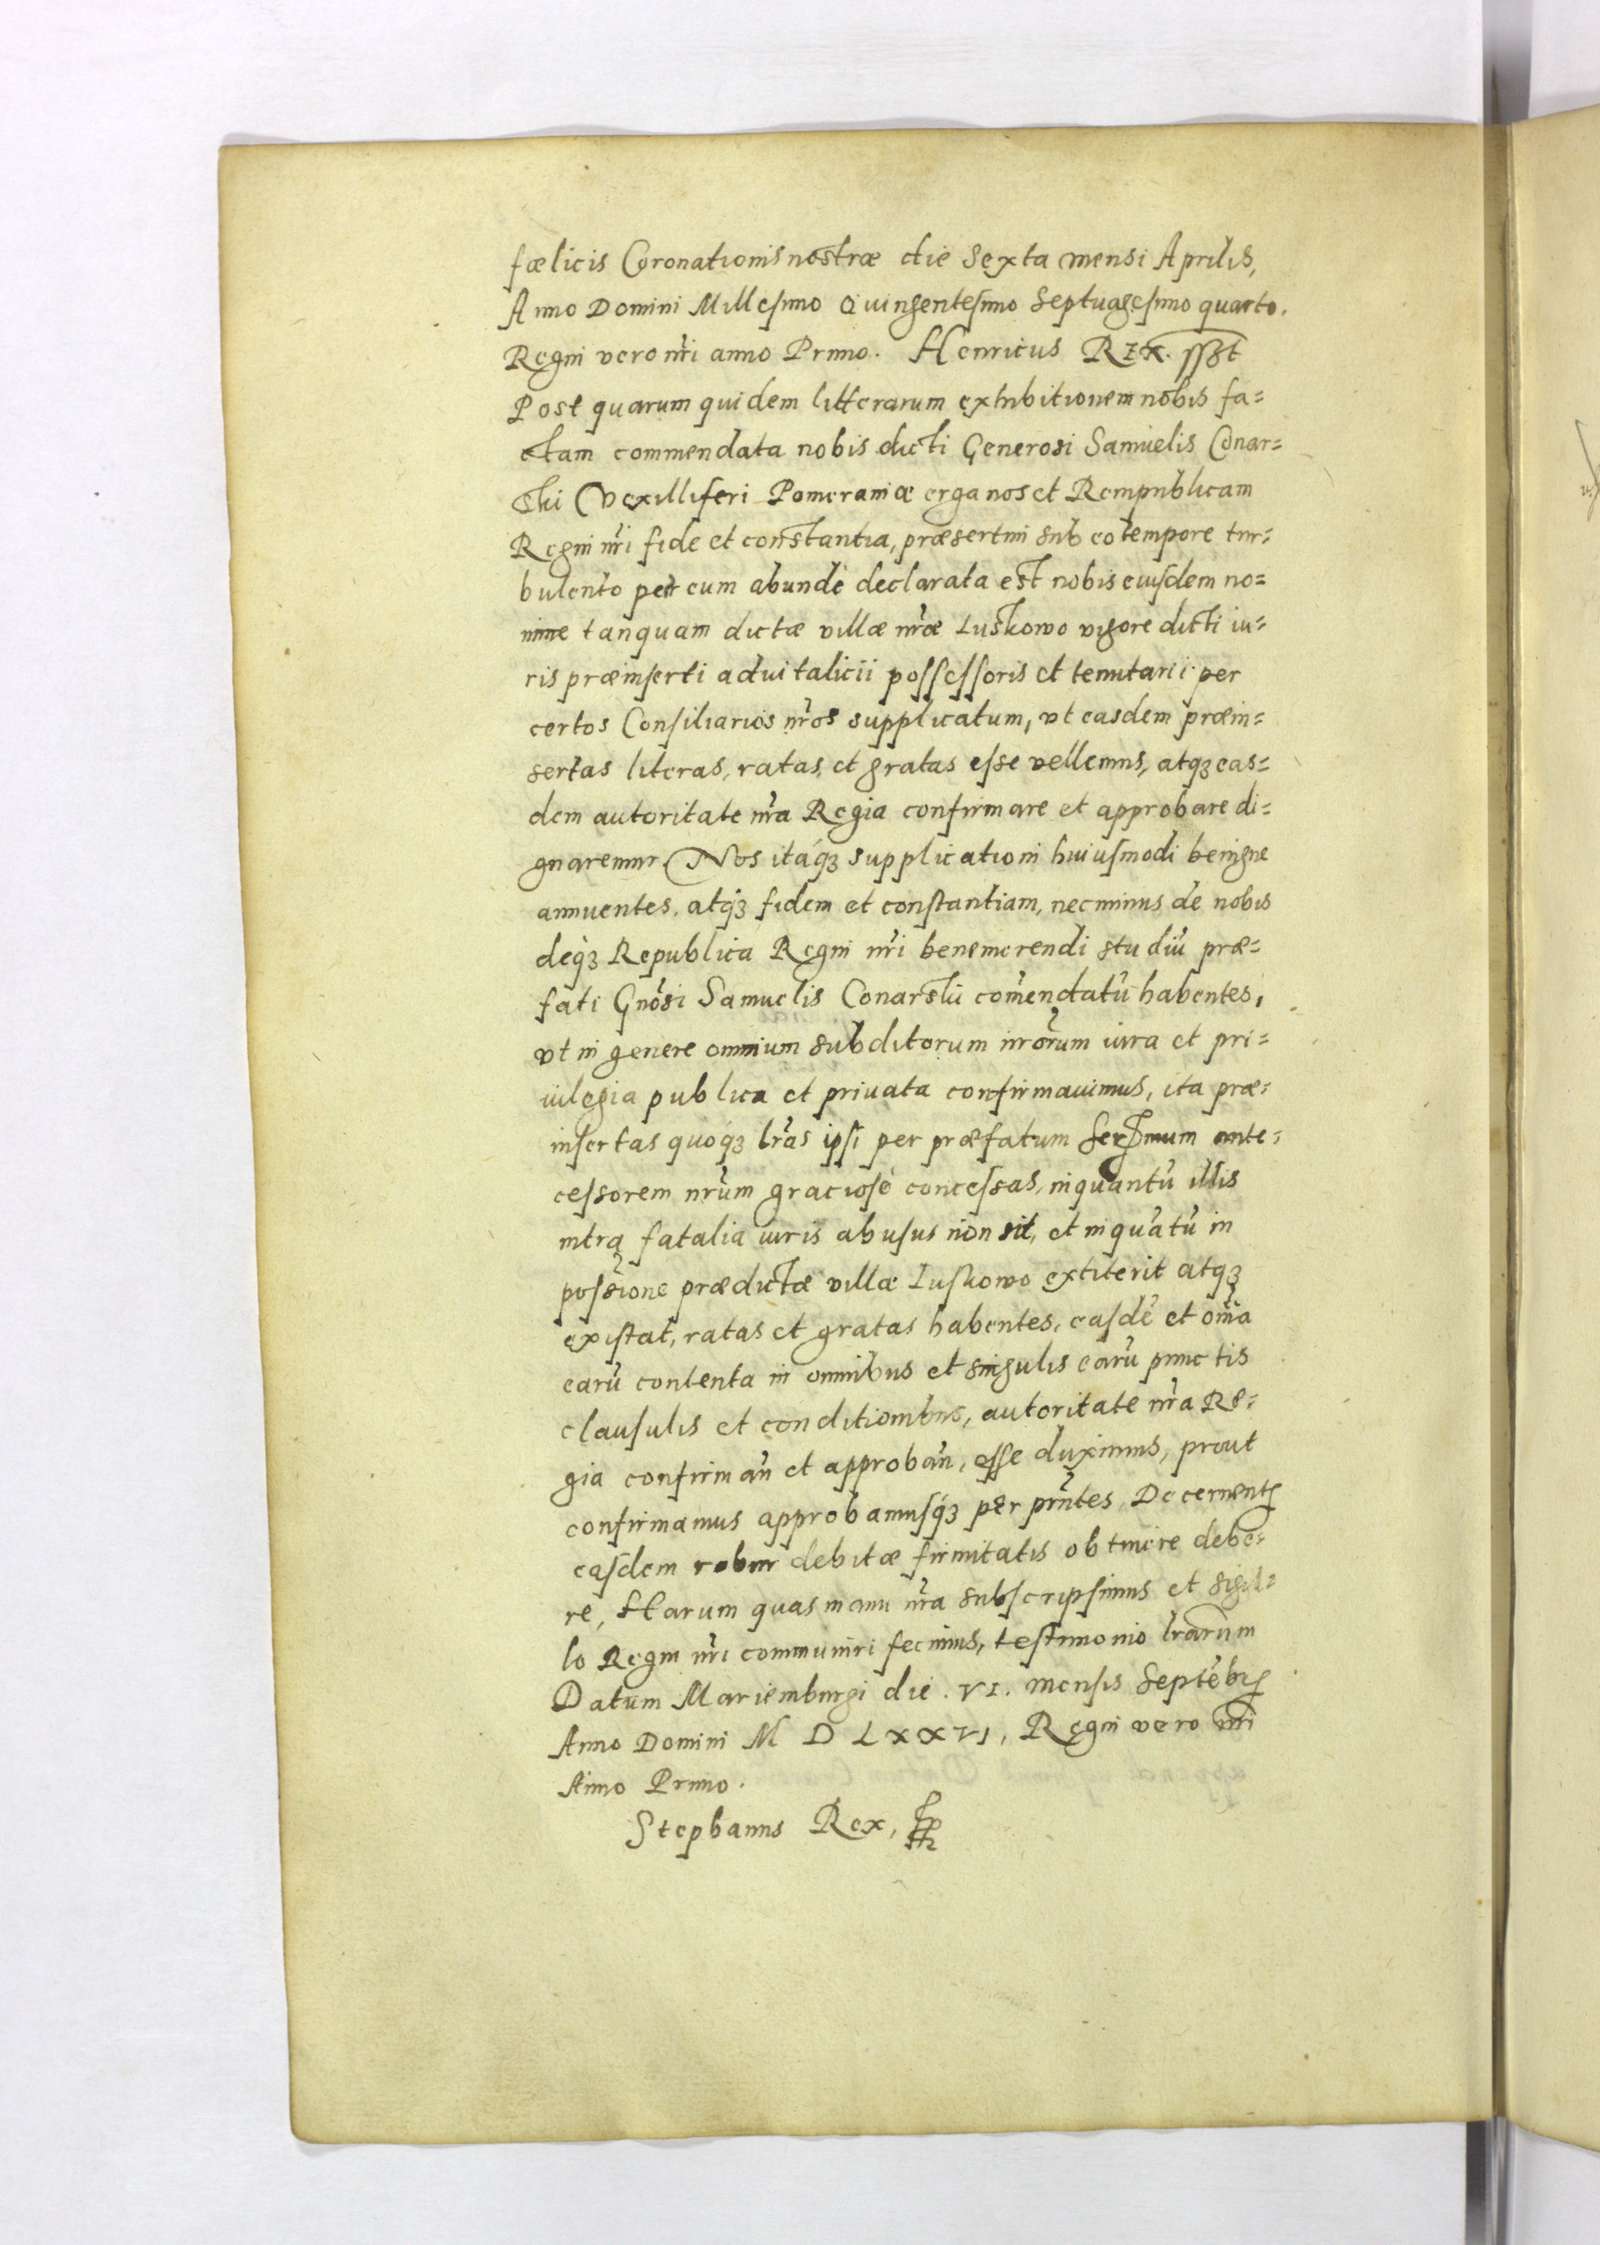 fælicis Coronationis nostræ die Sexta mensi Aprilis,
Anno Domini Millesimo Quingentesimo Septuagesimo quarto.
Regni vero nr̃i anno Primo. Henricus REX. sszt
Post quarum quidem litterarum exhibitionem nobis fa=
ctam commendata nobis dicti Generosi Samuelis Conar=
thi Vexilliferi Pomeraniæ erga nos et Rempublicam
Regni nr̃i fide et constantia, præsertim sub eo tempore tur=
bulento per eum abundè declarata est nobis eiusdem no=
mine tanquam dictæ villæ nr̃æ Luskowo vigore dicti iu=
ris præinserti aduitalicii possessoris et tenutarii per
certos Consiliarios nr̃os supplicatum, vt easdem præin=
sertas literas, ratas et gratas esse vellemus, atqꝫ eas=
dem autoritate nr̃a Regia confirmare et approbare di=
gnaremur Nos itáqꝫ supplicationi huiusmodi benigne
annuentes, atqꝫ fidem et constantiam, nec minus de nobis
deqꝫ Republica Regni nr̃i benemerendi studiũ præ=
fati Gnõsi Samuelis Conarskii com̃endatũ habentes,
vt in genere omnium subditorum nrõrum iura et pri=
uilegia publica et priuata confirmauimus, ita præ=
insertas quoqꝫ lr̃as ipsi per præfatum Serꝰmum ante=
cessorem nrũm graciosè concessas, inquantũ illis
intra fatalia iuris abusus non sit, et inquãtũ in
possẽione prædictæ villæ Luskowo extiterit atqꝫ
existat, ratas et gratas habentes, easdẽ et om̃ia
earũ contenta in omnibus et singulis earũ punctis
clausulis et conditionibus, autoritate nr̃a Re=
gia confirmañ et approbañ, esse duximus, prout
confirmamus approbamusqꝫ per prñtes Decernentꝭ
easdem robur debitæ firmitatis obtinere debe=
re, Harum quas manu nr̃a subscripsimus et sigil=
lo Regni nr̃i communiri fecimus, testimonio lrãrum
Datum Mariemburgi die . VI. mensis Septẽbrꝭ
Anno Domini M D LXXVI, Regni vero nr̃i
Anno Primo.
Stephanus Rex,